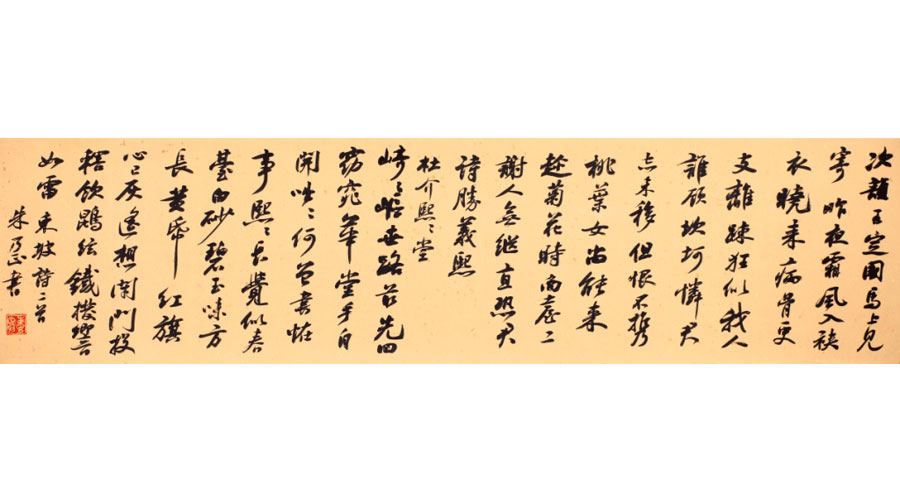 次韻王定國馬上見
寄 昨夜霜風入袂
衣曉来病骨更
支離踈狂似我人
誰顧坎坷憐君
志未移但恨不携
桃葉女尚能来
趂菊花時南臺二
謝人無繼直恐君
詩勝義熙
杜介熙〻堂
崎嶇世路最先回
窈窕華堂手自
開咄〻何曾書怪
事熙〻長覺似春
臺白砂碧玉味方
長黄帋紅旗
心已灰遥想閉門投
轄飲鵾弦鐵撥響
如雷 東坡詩二首
朱乃正書